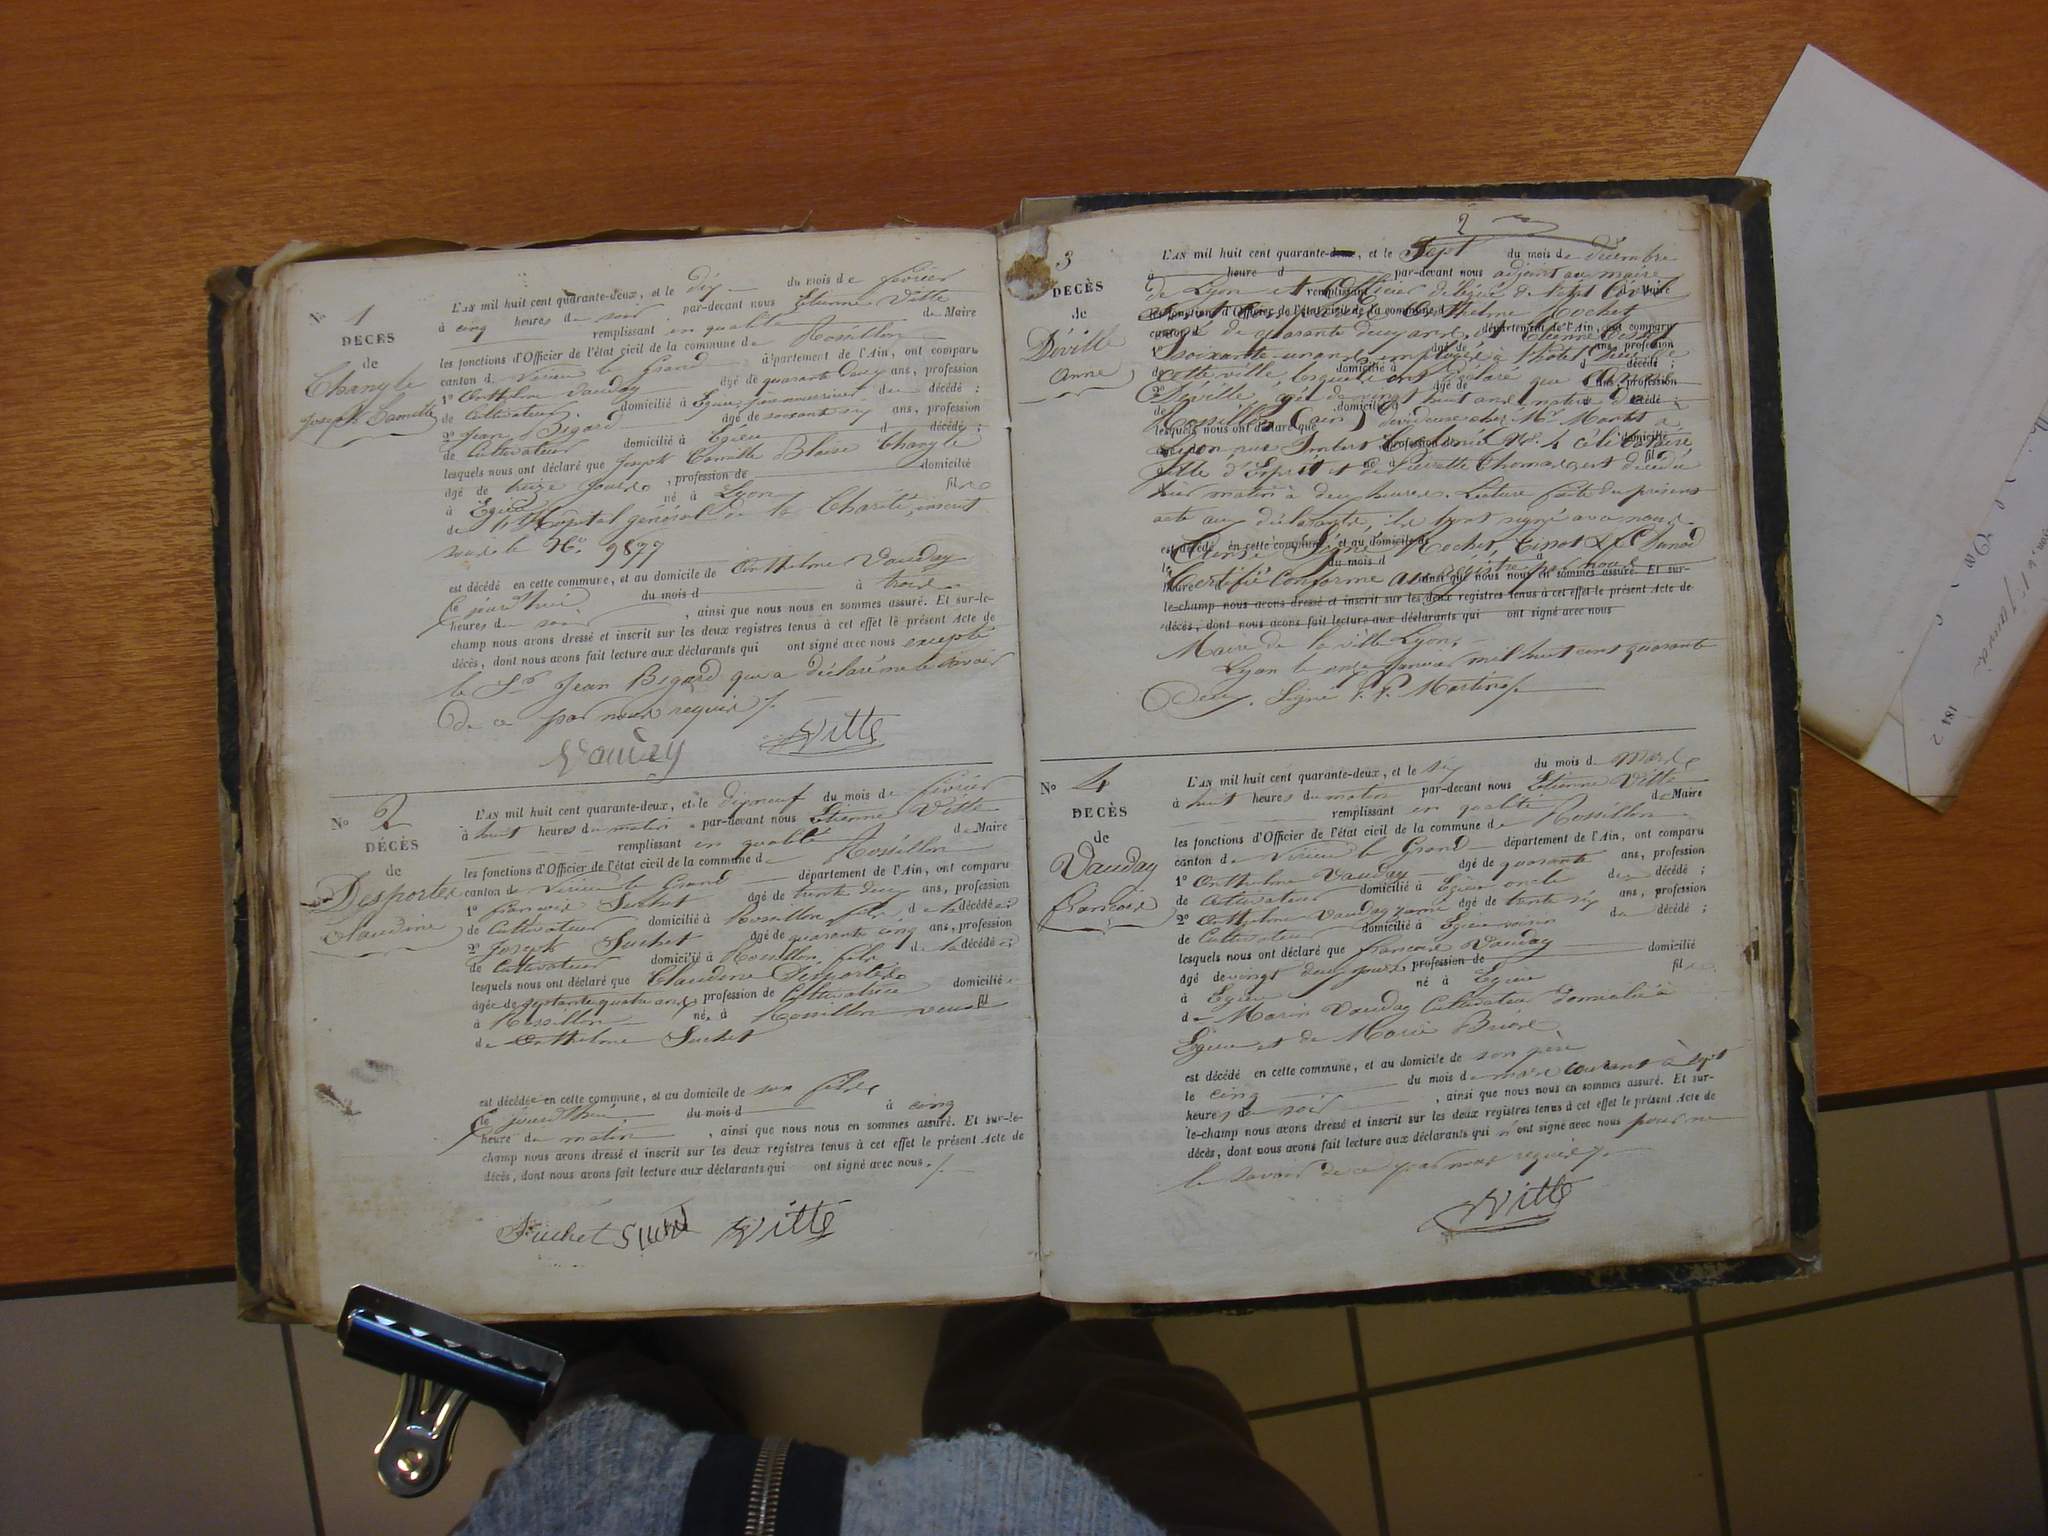 N° 1
DECÈS
de
Changle
Joseph Camille
L'AN mil huit cent quarante-deux, et le dix du mois de février
à cinq heures du soir par-devant nous Etienne Vitte
remplissant en qualité de Maire
les fonctions d'Officier de l'état civil de la commune de Rossillon
canton de Virieu le Grand département de l'Ain, ont comparu
1° Anthelme Vauday âgé de quarante deux ans, profession
de Cultivateur domicilié à Egieu du décédé ;
2° Jean Bigard âgé de soixante six ans, profession
de Cultivateur domicilié à Egieu d décédé ;
lesquels nous ont déclaré que Joseph Camille Blaise Changle
âgé de treize jours , profession de domicilié
à Egieu né à Lyon fil
de l'hôpital général de la Charité, inscrit
sous le N° 9877
est décédé en cette commune, et au domicile de Anthelme Vauday
le jourd'hui du mois d à trois
heures du soir , ainsi que nous nous en sommes assuré. Et sur-le-
champ nous avons dressé et inscrit sur les deux registres tenus à cet effet le présent Acte de
décès, dont nous avons fait lecture aux déclarants qui ont signé avec nous excepté
le Sr Jean Bigard qui a déclaré ne le savoir
de ce par nous requis
Vauday Vitte
N° 2
DÉCÈS
de
Desportes
Claudine
L'AN mil huit cent quarante-deux, et le dix neuf du mois de février
à huit heures du matin par-devant nous Etienne Vitte
remplissant en qualité de Maire
les fonctions d'Officier de l'état civil de la commune de Rossillon
canton de Virieu le Grand département de l'Ain, ont comparu
1° François Suchet âgé de trente deux ans, profession
de Cultivateur domicilié à Rossillon, fils de la décédée ;
2° Joseph Suchet âgé de quarante cinq ans, profession
de Cultivateur domicilié à Rossillon, fils de la décédée ;
lesquels nous ont déclaré que Claudine Desportes
âgée de septante quatre ans, profession de Cultivatrice domiciliée
à Rossillon née à Rossillon veuve fil
de Anthelme Suchet
est décédée en cette commune, et au domicile de son fils
le jourd'hui du mois d à cinq
heure du matin , ainsi que nous nous en sommes assuré. Et sur-le-
champ nous avons dressé et inscrit sur les deux registres tenus à cet effet le présent Acte de
décès, dont nous avons fait lecture aux déclarants qui ont signé avec nous.
Suchet Suchet Vitte
2
3
DECÈS
de
Déville
Anne
L'AN mil huit cent quarante-deux, et le Sept du mois de décembre
à heure d par-devant nous adjoint au maire
de Lyon et Officier délégué de l'état Civil
remplissant de Maire
les fonctions d'Officier de l'état civil de la commune d Anthelme Rochet
âgé de quarante deux ans, et Etienne
canton d département de l'Ain, ont comparu
soixante un ans employés à l'hôtel
âgé de ans, profession
cette ville, lesquels ont déclaré que Anne
Déville, âgée de vingt huit ans, native de
Rossillon (ain) dévideuse chez Mr
lesquels nous ont déclaré que
Lyon rue Imbert Colomès N° 4 célibataire
fille d'Esprit et de Pierrette Thomas, est décédée
hier matin à deux heures. Lecture faite du présent
acte aux déclarants, ils l'ont signé avec nous.
est décédé en cette commune, et au domicile de
Signé Rochet,
le du mois d
Certifié Conforme au registre par nous
heure d ainsi que nous nous en sommes assuré. Et sur-
le-champ nous avons dressé et inscrit sur les deux registres tenus à cet effet le présent Acte de
décès, dont nous avons fait lecture aux déclarants qui ont signé avec nous
Maire de la ville Lyon,
Lyon le onze Janvier mil huit cent quarante
Deux. Signé Martin
N° 4
DECÈS
de
Vauday
François
L'AN mil huit cent quarante-deux, et le six du mois de Mars
à huit heures du matin par-devant nous Etienne Vitte
remplissant en qualité de Maire
les fonctions d'Officier de l'état civil de la commune de Rossillon
canton de Virieu le Grand département de l'Ain, ont comparu
1° Anthelme Vauday âgé de quarante ans, profession
de Cultivateur domicilié à Egieu oncle du décédé ;
2° Anthelme Vauday âgé de trente six ans, profession
de Cultivateur domicilié à Egieu voisin du décédé ;
lesquels nous ont déclaré que François Vauday
âgé de vingt deux jours profession de domicilié
à Egieu né à Egieu fil
de Marin Vauday Cultivateur domicilié à
Egieu et de Marie
est décédé en cette commune, et au domicile de son père
le cinq du mois de mars courant à sept
heures du soir , ainsi que nous nous en sommes assuré. Et sur-
le-champ nous avons dressé et inscrit sur les deux registres tenus à cet effet le présent Acte de
décès, dont nous avons fait lecture aux déclarants qui n'ont signé avec nous pour ne
le savoir de ce par nous requis
Vitte
1842